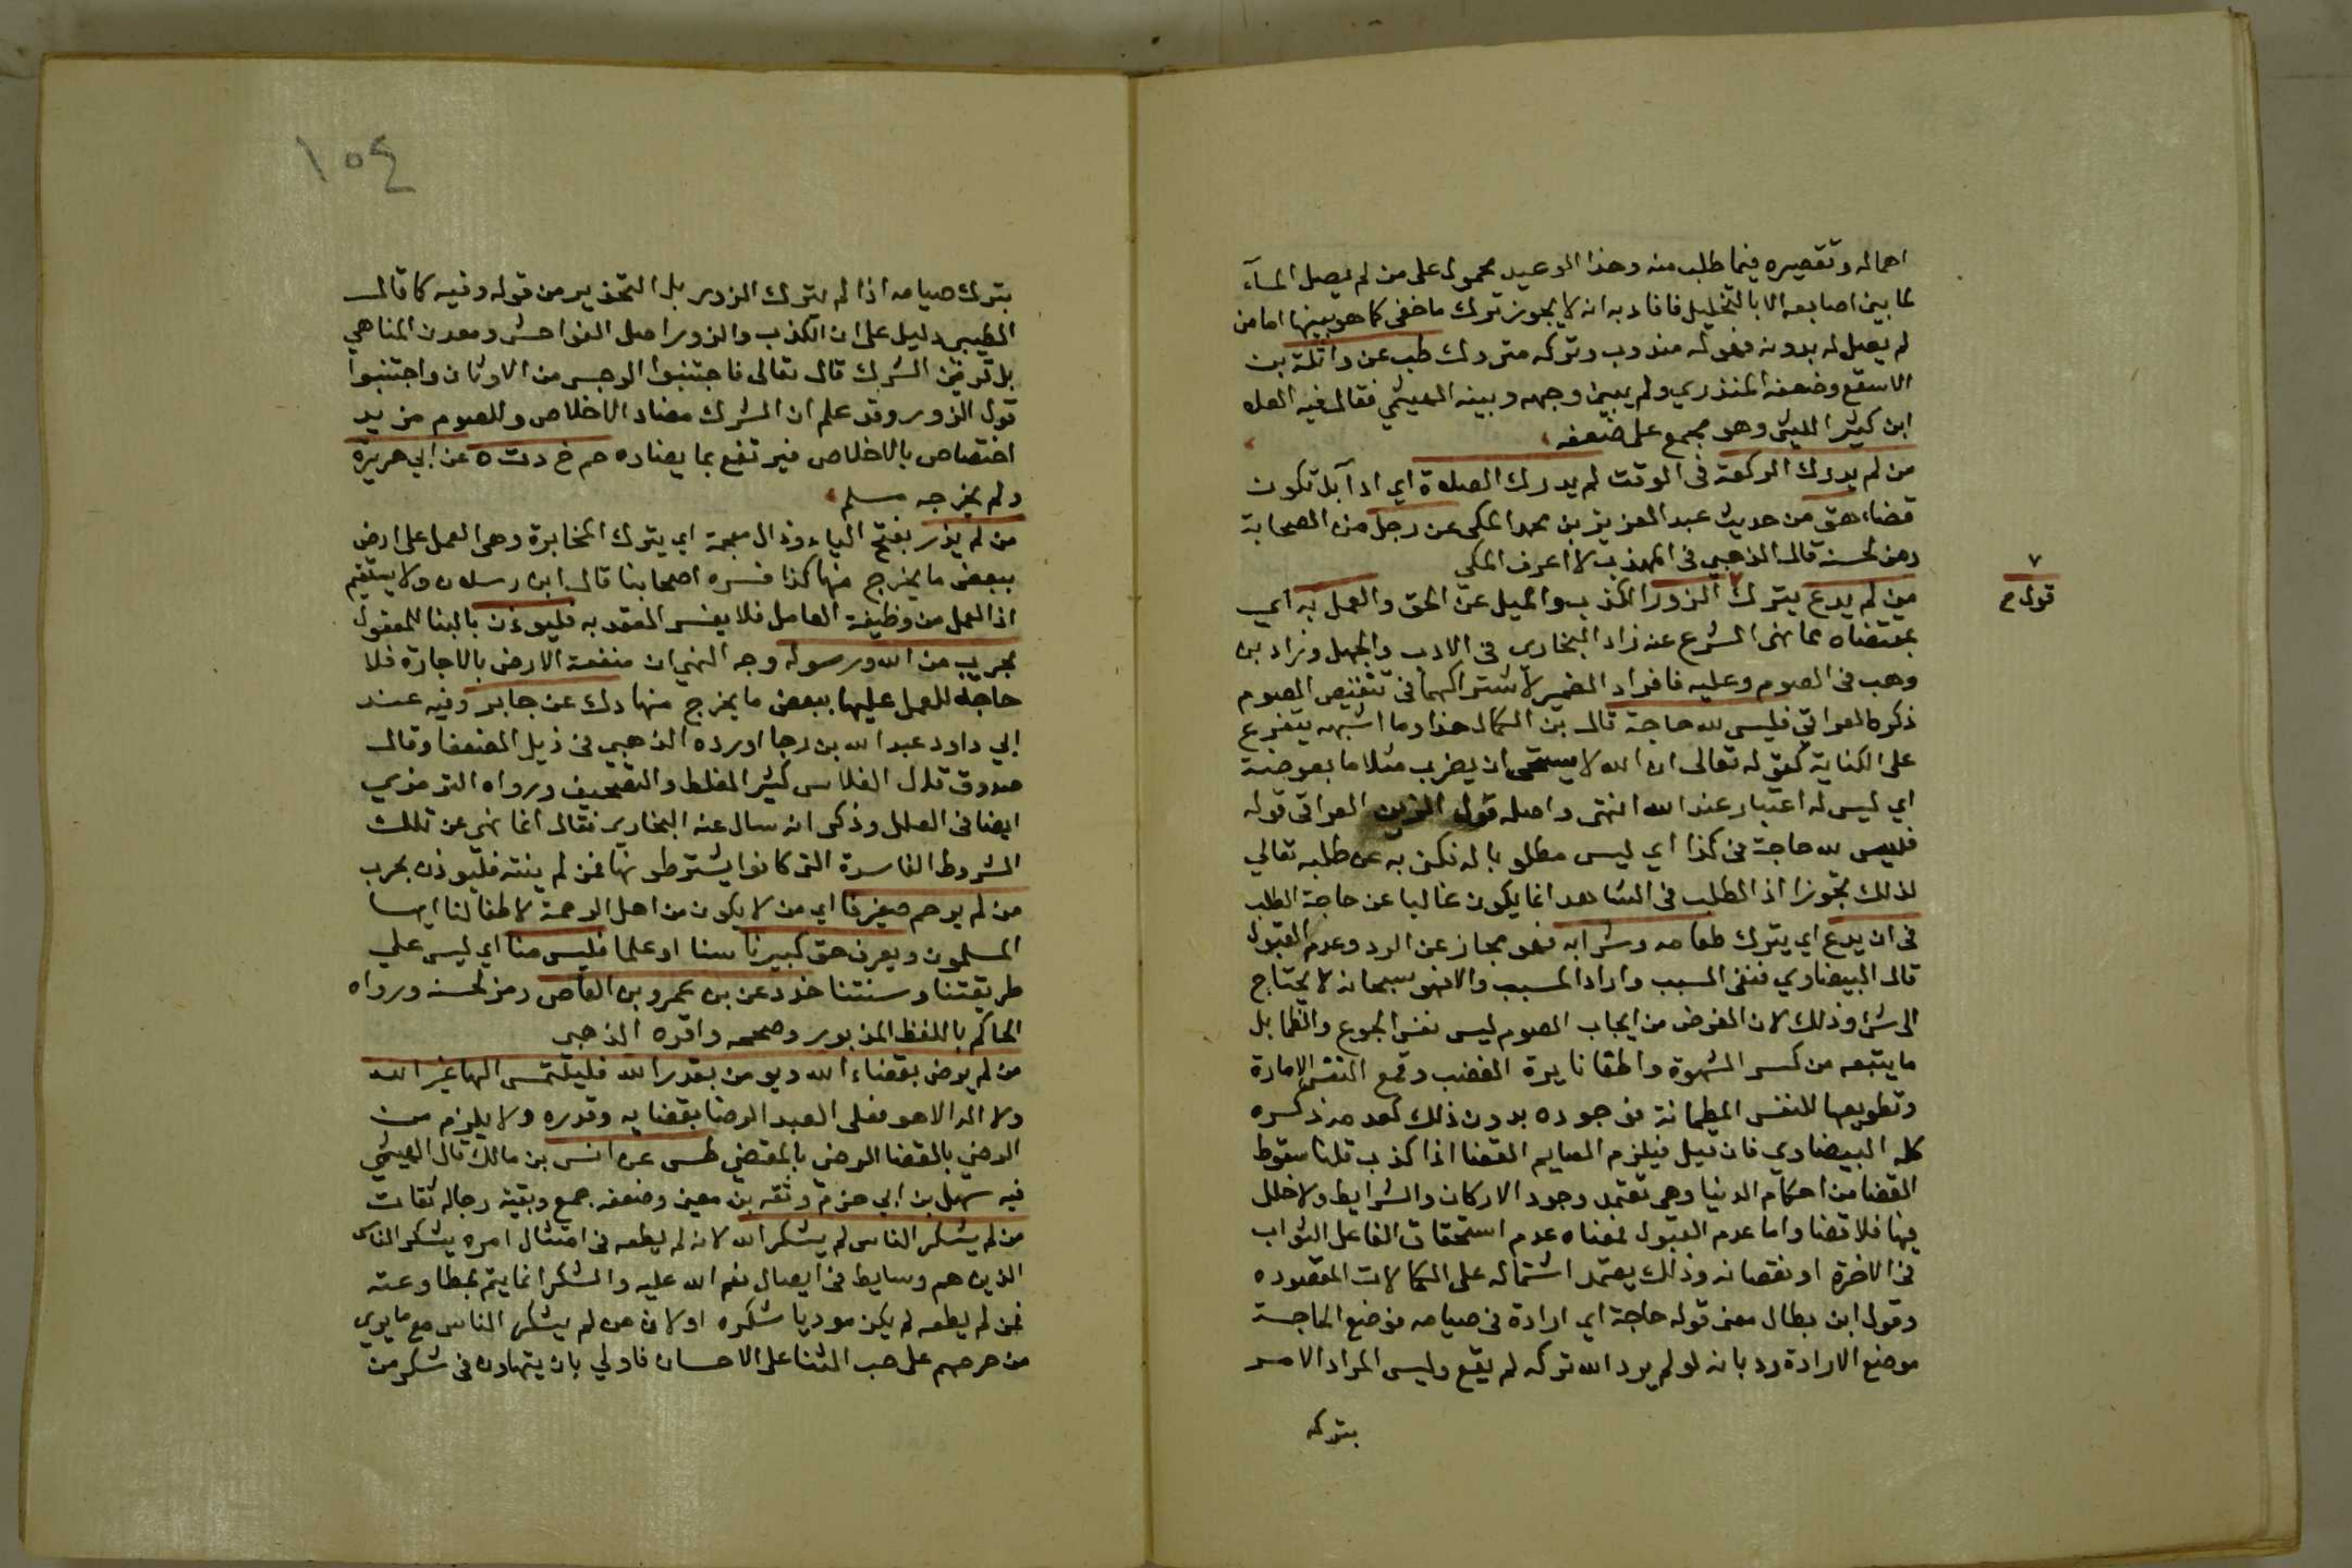 اهماله وتقصيره فيما طلب منه وهذا الوعيد محمول على من لم يصل الماء
لما بين اصابعه الا بالتخليل فافاد به انه لا يجوز ترك ما خفى كما هو بينها اما من
لم يصل له بدونه فهو له مندوب وتركه متروك طب عن واثلة بن
الاسقع وضعفه المنذري ولم يبين وجهه وبينه الهيثمي فقال فيه العلا
ابن كثير الليثى وهو مجمع على ضعفه
من لم يدرك الركعة فى الوقت لم يدرك الصلاة اي اداء بل تكون
قضاء هق من حديث عبد العزيز بن محمد المكى عن رجل من الصحابة
رمز لحسنه قال الذهبي فى المهذب لا اعرف المكى
من لم يدع يترك ٧ الزور الكذب والميل عن الحق والعمل به اي
٧
قول صح
بمقتضاه مما نهى الشرع عنه زاد البخارى فى الادب والجهل وزاد بن
وهب فى الصوم وعليه فافراد الضمير لاشتراكهما فى تنقيص الصوم
ذكره العراقي فليس لله حاجة قال بن الكمال هذا وما اشبهه يتفرع
على الكناية كقوله تعالى ان الله لا يستحى ان يضرب مثلا ما بعوضة
اي ليس له اعتبار عند الله انتهى واصله قول الزين العراقى قوله
فليس لله حاجة فى كذا اي ليس مطلوبا له فكنى به عن طلبه تعالي
لذلك تجوزا اذ الطلب فى الشاهد انما يكون غالبا عن حاجة الطلب
فى ان يدع اي يترك طعامه وشرابه فهو مجاز عن الرد وعدم القبول
قال البيضاوي فنفى السبب واراد المسبب والا فهو سبحانه لا يحتاج
الى شئ وذلك لان الغرض من ايجاب الصوم ليس نفس الجوع والظما بل
ما يتبعه من كسر الشهوة واطفا نايرة الغضب وقمع النفس الامارة
وتطويعها للنفس المطمانة فوجوده بدون ذلك كعدمه ذكره
كله البيضاوي فان قيل فيلزم الصايم القضا اذا كذب قلنا سقوط
القضا من احكام الدنيا وهى تعتمد وجود الاركان والشرايط ولا خلل
فيها فلا قضا واما عدم القبول فمعناه عدم استحقاق الفاعل الثواب
فى الاخرة او نقصانه وذلك يعتمد اشتماله على الكمالات المقصوده
وقول ابن بطال معنى قوله حاجة اي ارادة فى صيامه فوضع الحاجة
موضع الارادة رد بانه لو لم يرد الله تركه لم يقع وليس المراد الامر
بتركه
١٥٤
بترك صيامه اذا لم يترك الزور بل التحذير من قوله وفيه كما قال
الطيبى دليل على ان الكذب والزور اصل الفواحش ومعدن المناهي
بل قرين الشرك قال تعالى فاجتنبوا الرجس من الاوثان واجتنبوا
قول الزور وقد علم ان الشرك مضاد الاخلاص وللصوم مزيد
اختصاص بالاخلاص فيرتفع بما يضاده حم خ د ت ه عن ابي هريرة
ولم يخرجه مسلم
من لم يذر بفتح الياء وذال معجمة اي يترك المخابرة وهى العمل على ارض
ببعض ما يخرج منها كذا فسره اصحابنا قال ابن رسلان ولا يستقيم
اذ العمل من وظيفة العامل فلا يفسر العقد به فليؤذن بالبنا للمفعول
بحرب من الله ورسوله وجه النهي ان منفعة الارض بالاجارة فلا
حاجة للعمل عليها ببعض ما يخرج منها د ك عن جابر وفيه عند
ابي داود عبد الله بن رجا اورده الذهبي فى ذيل الضعفا وقال
صدوق قال الفلاس كثير الغلط والتصحيف ورواه الترمذي
ايضا فى العلل وذكر انه سال عنه البخارى فقال انما نهى عن تلك
الشروط الفاسدة التى كانوا يشترطونها فمن لم ينته فليوذن بحرب
من لم يرحم صغيرنا اي من لا يكون من اهل الرحمة لاطفالنا ايها
المسلمون ويعرف حق كبيرنا سنا او علما فليس منا اي ليس علي
طريقتنا وسنتنا خد د عن بن عمرو بن العاص رمز لحسنه ورواه
الحاكم باللفظ المزبور وصححه واقره الذهبى
من لم يرض بقضاء الله ويومن بقدر الله فليلتمس الها غير الله
ولا اله الا هو فعلى العبد الرضا بقضايه وقدره ولا يلزم من
الرضي بالقضا الرضى بالمقضي طس عن انس بن مالك قال الهيثمي
فيه سهل بن ابي حزم وثقه بن معين وضعفه جمع وبقية رجاله ثقات
من لم يشكر الناس لم يشكر الله لانه لم يطعه فى امتثال امره بشكر الناس
الذين هم وسايط فى ايصال نعم الله عليه والشكر انما يتم بمطاوعته
فمن لم يطعه لم يكن موديا شكره او لان من لم يشكر الناس مع ما يرى
من حرصهم على حب الثنا على الاحسان فاولي بان يتهاون فى شكر من